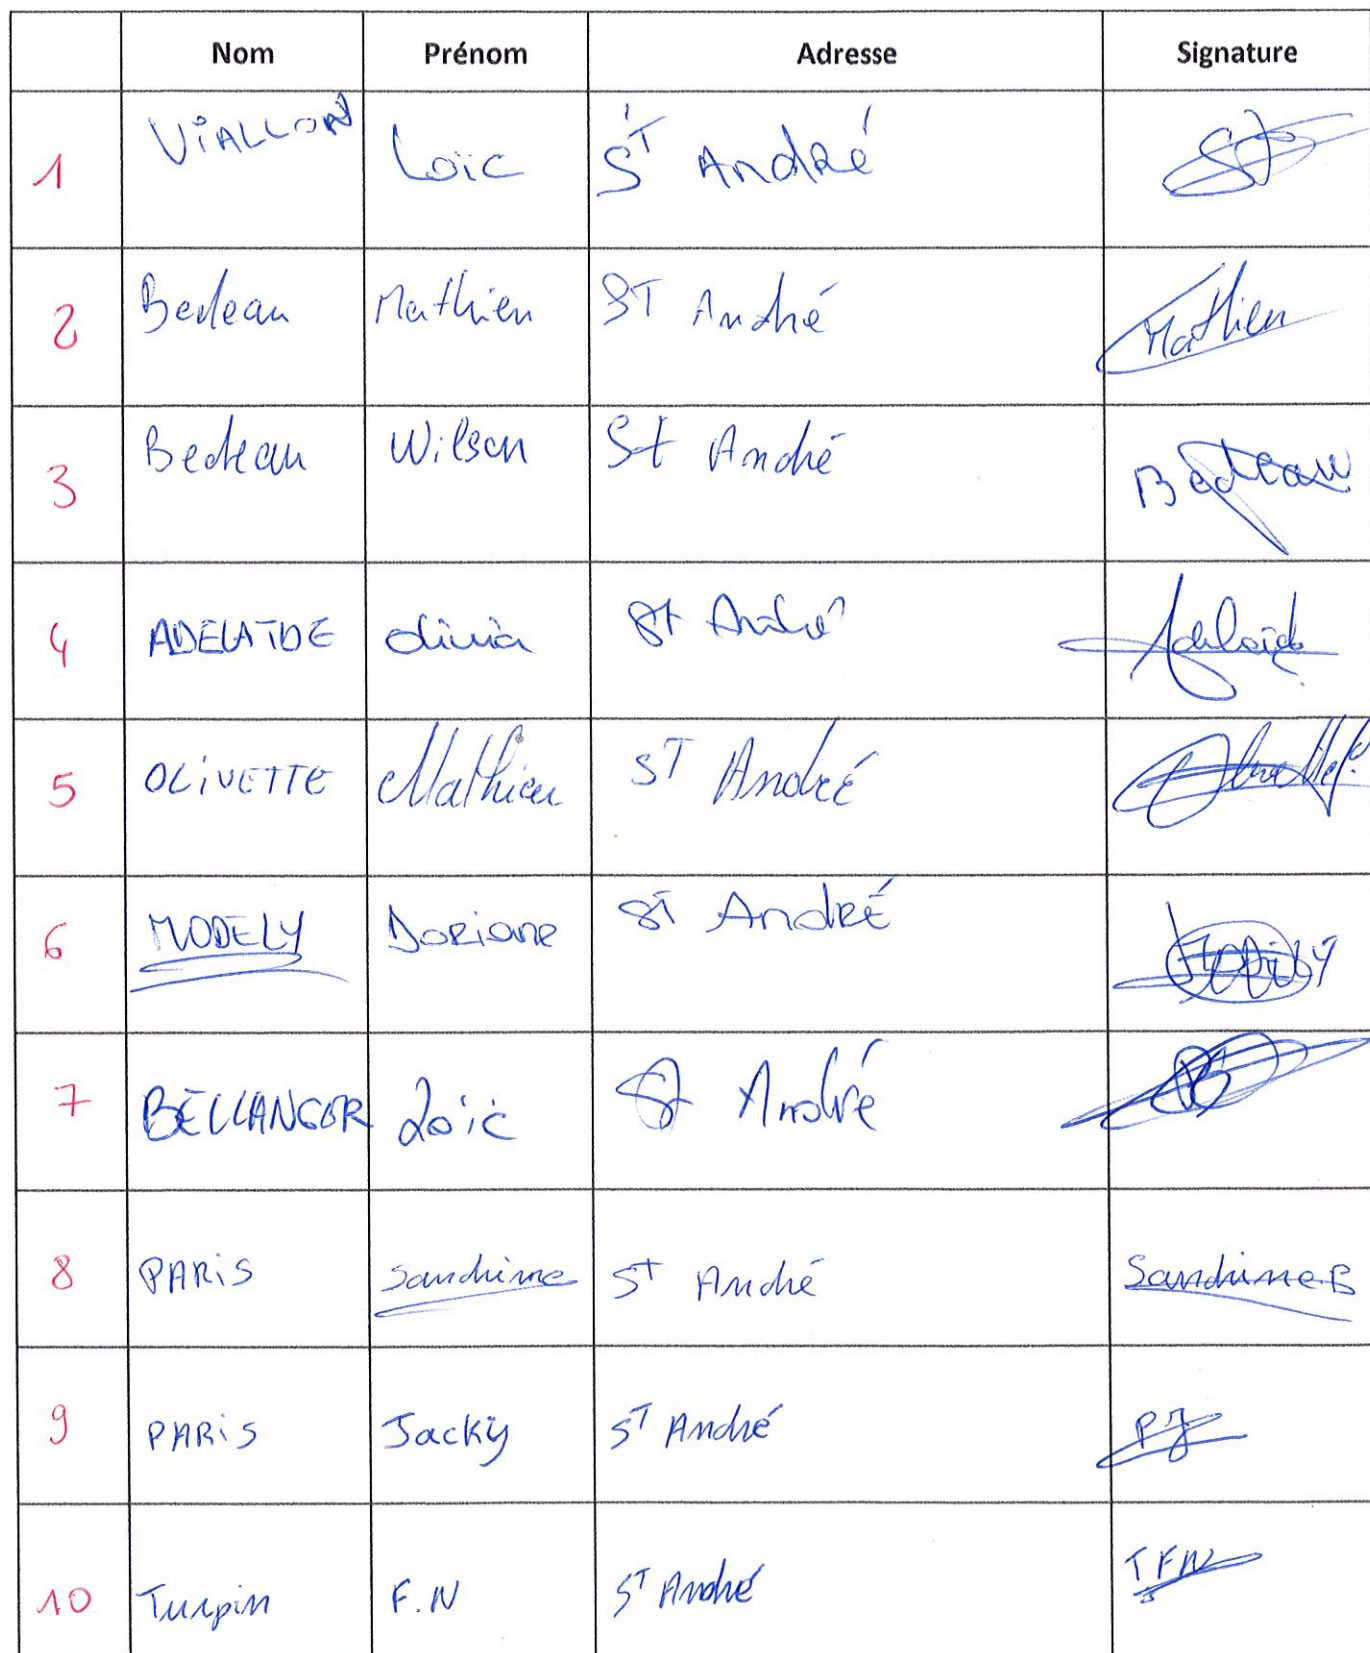 Nom Prénom Adresse Signature
1 ViALLON Loïc ST André
2 Bedeau Mathieu ST André Mathieu
3 Bedeau Wilson St André Bedeau
4 ADELAIDE olivia St André Adelaide
5 OLiVETTE Mathieu ST André
6 MODELY Doriane ST André
7 BELLANGER Loïc St André
8 PARiS Sandrine ST André Sandrine B
9 PARiS Jacky ST André PJ
10 Turpin F.N ST André TFN